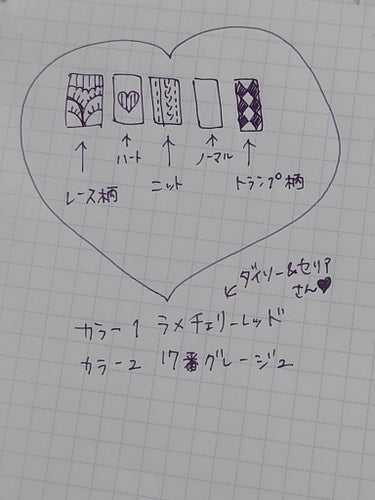 レース柄
ハート
ニット
ノーマル
トランプ柄
ダイソー&セリア
さん♥
カラー1 ラメチェリーレッド
カラー2 17番グレージュ